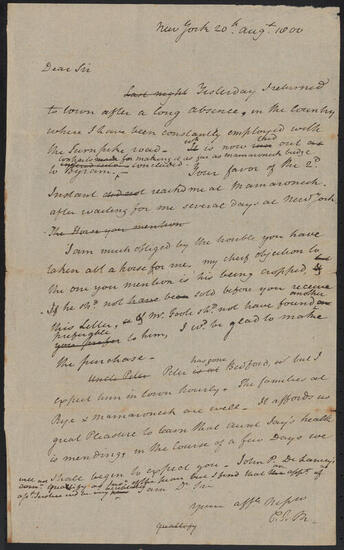 New York 20th Augt. 1800
Dear Sir
Last night Yesterday I returned
to town after a long absence, in the Country
where I have been constantly employed with
the Turnpike road - It is now out
making it as far as mamaroneck bridge
to Byram, - concluded - Your favor of the 2d.
Instant did not reached me at Mamaroneck
after waiting for me several days at New York.
The Horse you mention
I am much obliged by the trouble you have
taken abt a horse for me, my chief objection to
the one you mention is his being cropped, but
If he shd. not have been sold before you receive
this Letter, or if Mr. Coole shd. not have found another
preferable to him, I wd. be glad to make
the purchase -
Uncle Peter Peter has gone is at Bedford, but I
expect him in town hourly. The families at
Rye & Mamaroneck are well - It affords us
great Pleasure to learn that aunt Jay's health
is mending, in the Course of a few Days we
shall begin to expect you - John P. De Lancey,
I am Dr Sir
Yours afftly. Nephew
P. J. M.